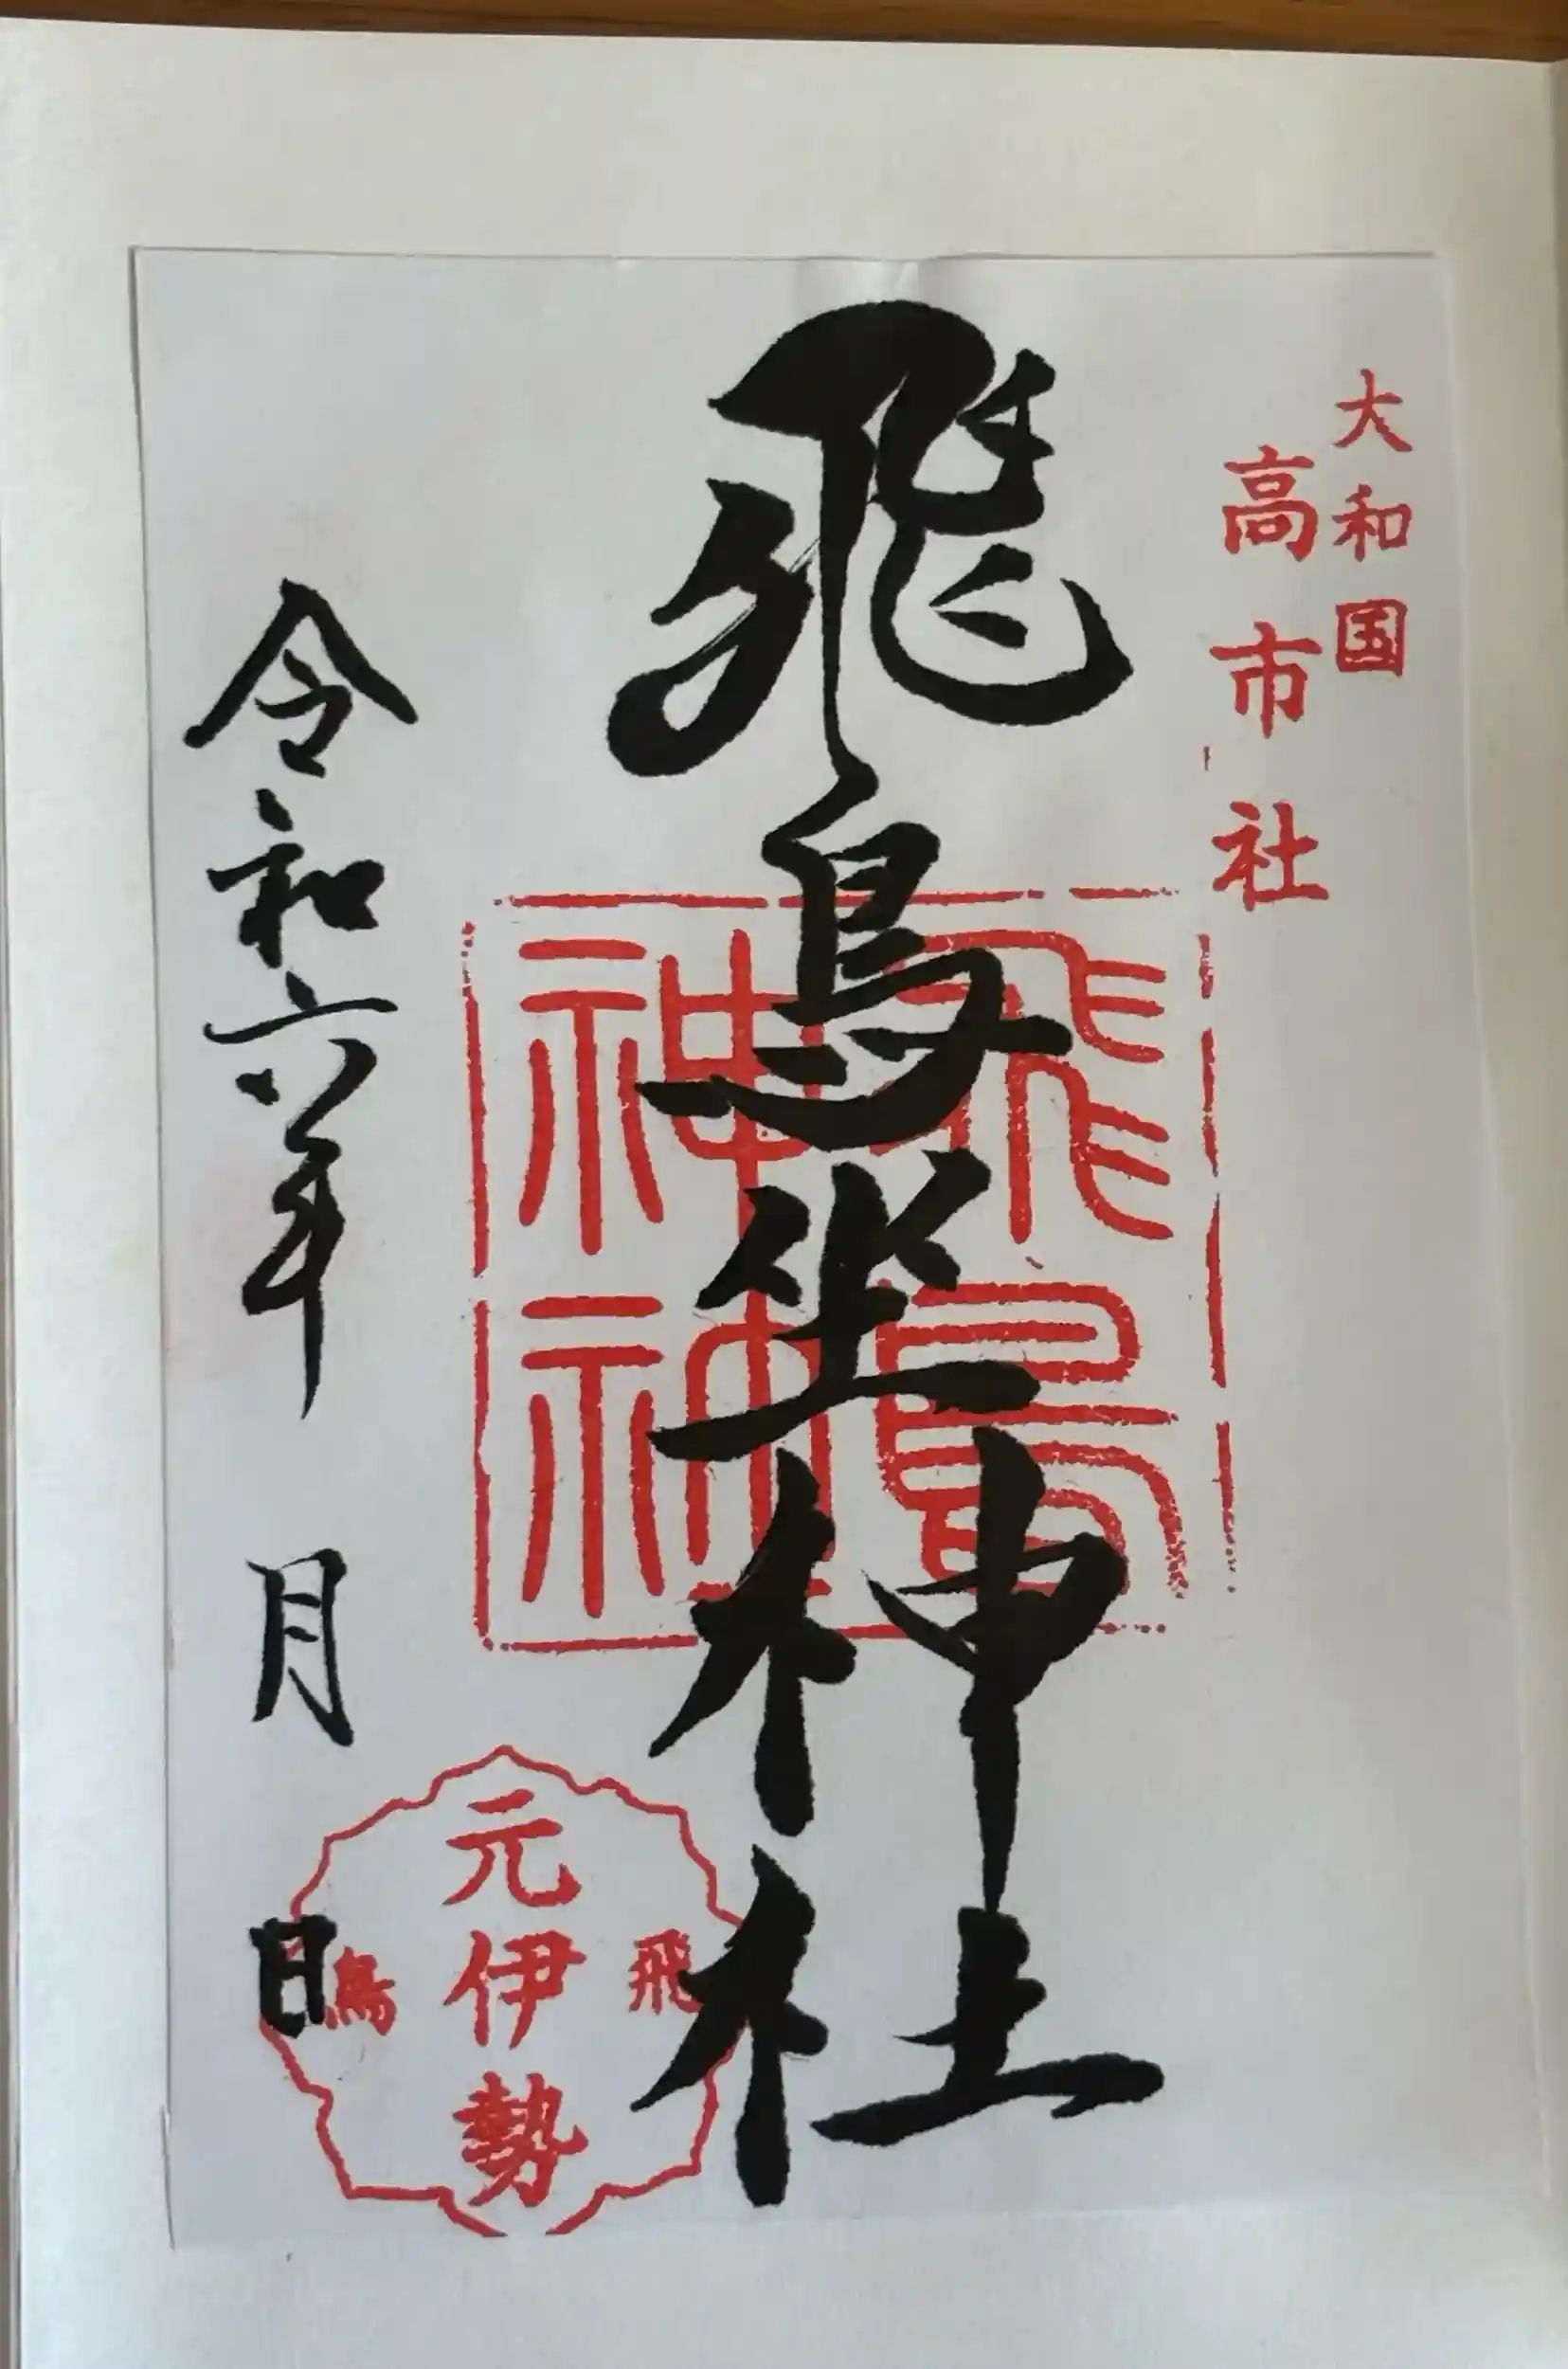 大和国
高市社
飛鳥坐神社
飛鳥
神神
令和六年 月 日
飛鳥
元伊勢